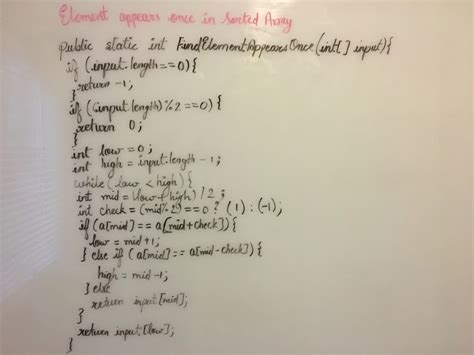 Element appears once in Sorted Array
public static int FindElementAppearsOnce(int[] input){
if (input.length==0){
return -1;
}
if ((input.length)%2==0){
return 0;
}
int low=0;
int high = input.length-1;
while (low < high) {
int mid = (low+high)/2;
int check = (mid%2)==0 ? (1) : (-1);
if (a[mid] == a[mid+check]){
low = mid+1;
} else if (a[mid]== a[mid-check]){
high = mid-1;
} else
return input[mid];
}
return input[low];
}